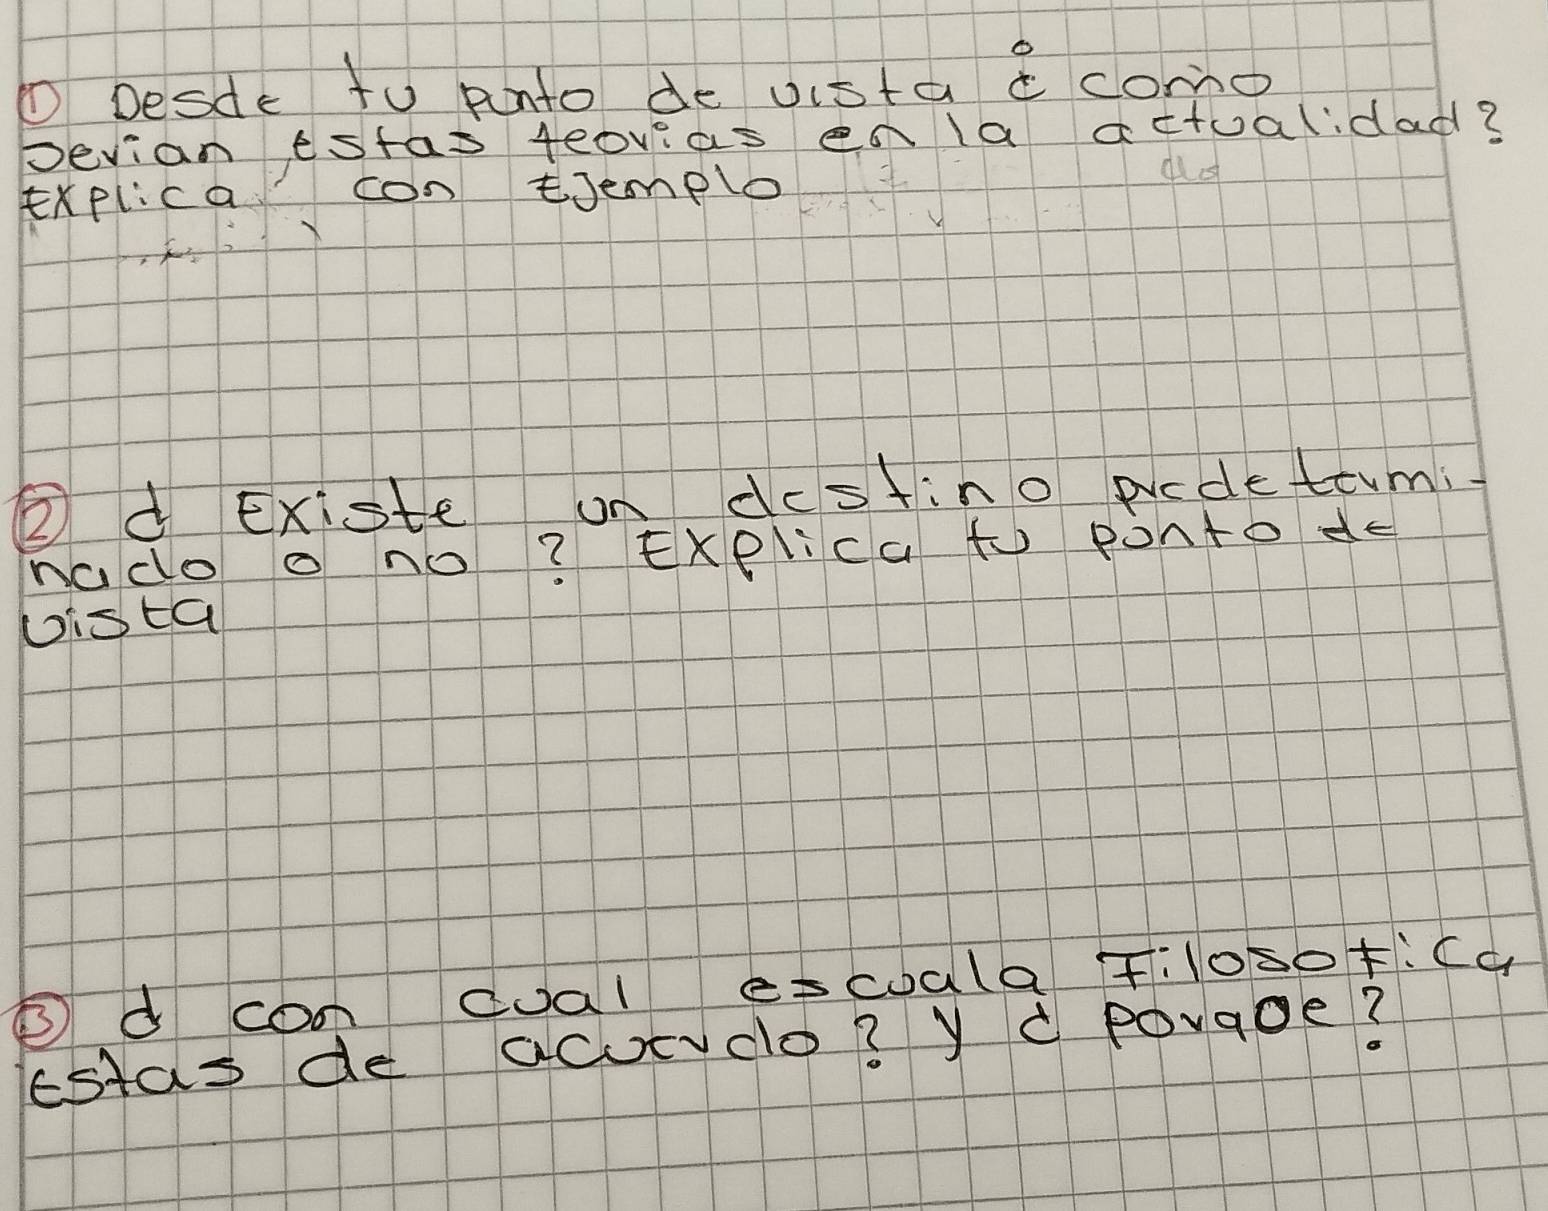 ① Desde tu punto de vista ¿ como
serian estas teorias en la actualidad?
Explica con Ejemplo
② ¿ Existe un destino predetermi-
nado o no ? Explica tu punto de
vista
③ ¿ con cual escuala Filosofica
estas de acuerdo? y ¿ porque?